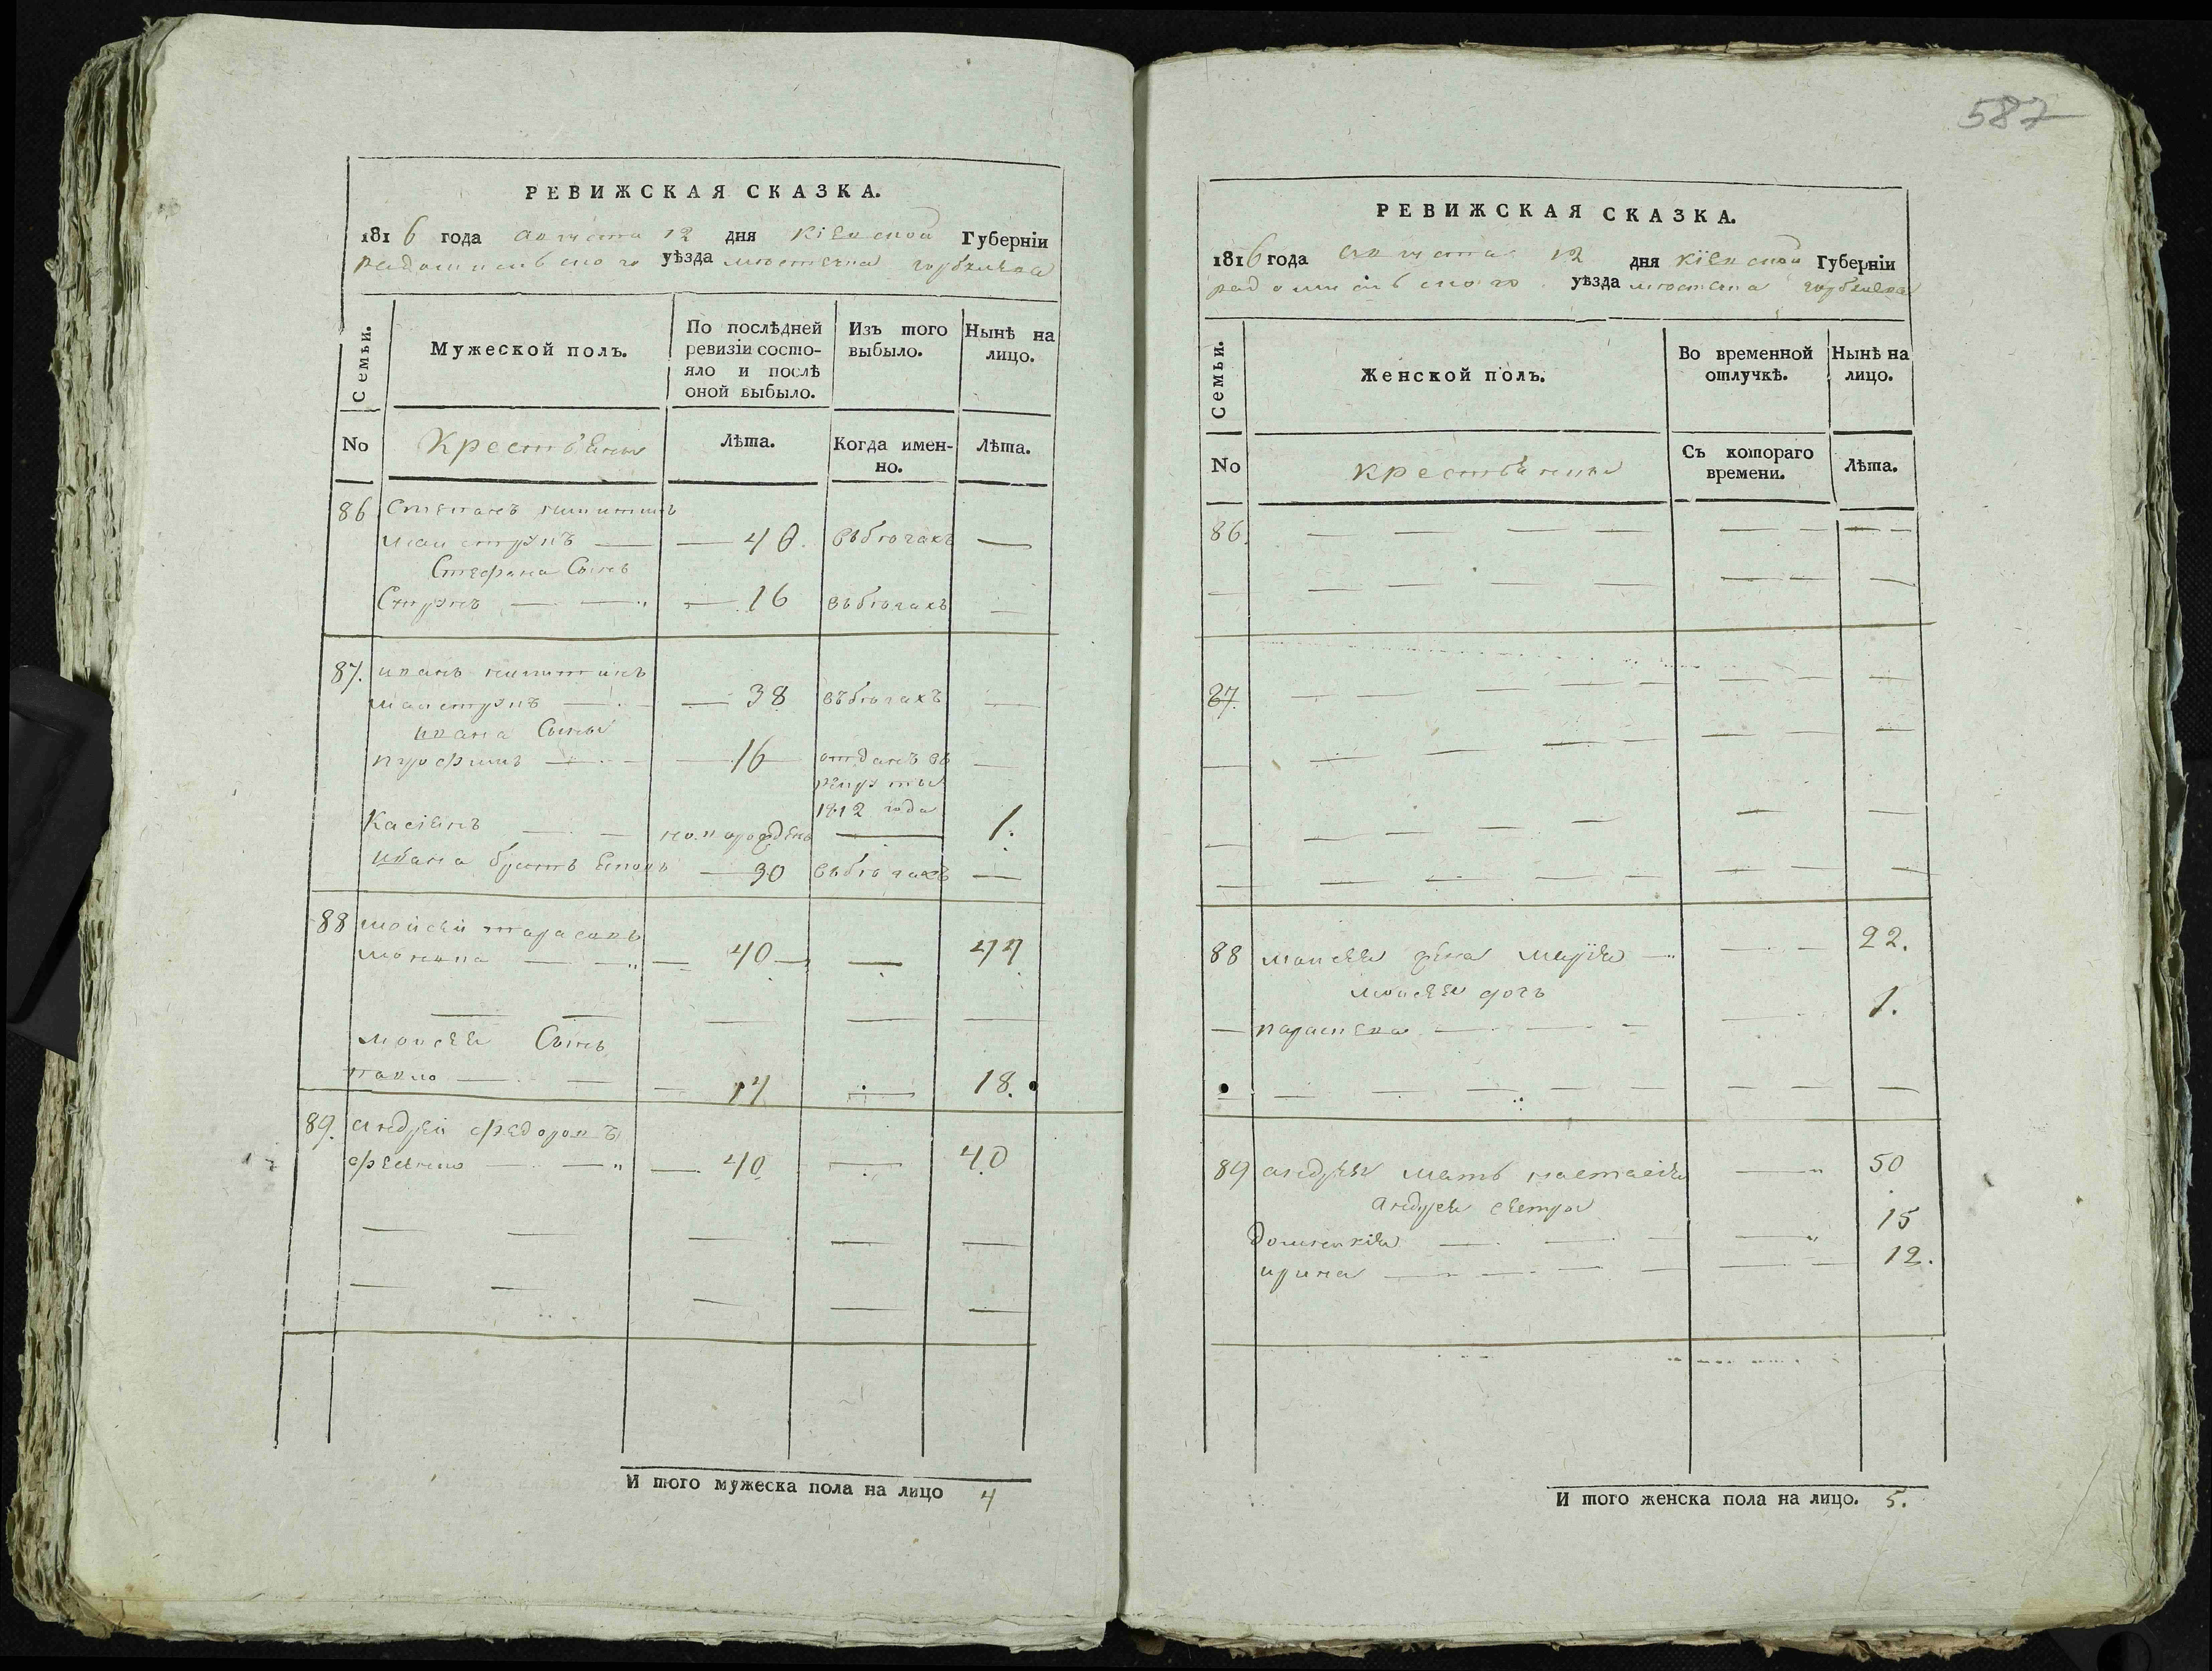 587
РЕВИЖСКАЯ СКАЗКА.
1816 года августа 12 дня Кіевской Губерніи
радомисльского уѣзда мѣстечка горбулева
Семьи.
Мужеской полъ.
По послѣдней ревизіи состо-
яло и послѣ оной выбыло.
Изъ того выбыло.
Нынѣ на лицо.
No
Крестьяне
Лѣта.
Когда имен-
но.
Лѣта.
86 Степанъ никитинъ
— 40. въбѣгахъ —
Стефана Сынъ
— 16 въбѣгахъ —
87. иванъ никитинъ
— 38 въбѣгахъ —
ивана Сыны
трофимъ — 16 отданъ въ —
рекруты
1812 года
Касіянъ — новорожденъ — 1.
ивана братъ — 30 въбѣгахъ —
88 мойсей тарасовъ
— 40 — 44
мойсея Сынъ
павло — 14 — 18.
89. андрей федоровъ
— 40 — 40
И того мужеска пола на лицо 4
РЕВИЖСКАЯ СКАЗКА.
1816 года августа 12 дня кіевской Губерніи
радомисльского уѣзда мѣстечка горбулева
Семьи.
Женской полъ.
Во временной отлучкѣ.
Нынѣ на лицо.
No
крестьянки
Съ котораго времени.
Лѣта.
86.
87.
88 мойсея жена марія — 22.
мойсея дочь
параскева — 1.
89 андрея мать настасія — 50
андрея сестры
домникія — 15
ирина — 12.
И того женска пола на лицо. 5.